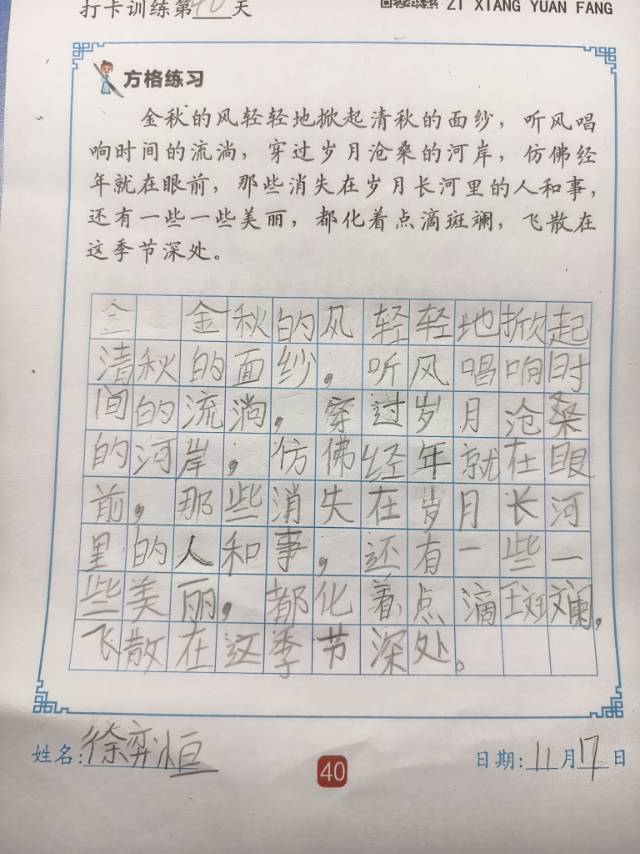 打卡训练第40天
ZI XIANG YUAN FANG
方格练习
金秋的风轻轻地掀起清秋的面纱，听风唱
响时间的流淌，穿过岁月沧桑的河岸，仿佛经
年就在眼前，那些消失在岁月长河里的人和事，
还有一些一些美丽，都化着点滴斑斓，飞散在
这季节深处。
金秋的风轻轻地掀起
清秋的面纱，听风唱响时
间的流淌，穿过岁月沧桑
的河岸，仿佛经年就在眼
前，那些消失在岁月长河
里的人和事，还有一些一
些美丽，都化着点滴斑斓，
飞散在这季节深处。
姓名：徐弈恒
40
日期：11月17日